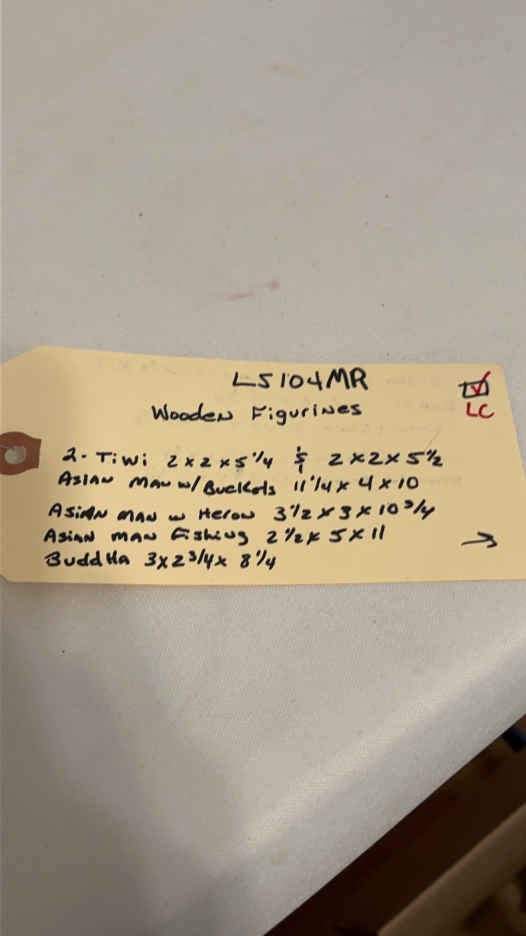 LS104MR
LC
Wooden Figurines
2 - Tiwi 2x2x5 1/4 & 2x2x5 1/2
Asian Man w/ Buckets 11 1/4 x 4 x 10
Asian man w Heron 3 1/2 x 3 x 10 3/4
Asian man Fishing 2 1/2 x 5 x 11
Buddha 3x2 3/4x 8 1/4
→